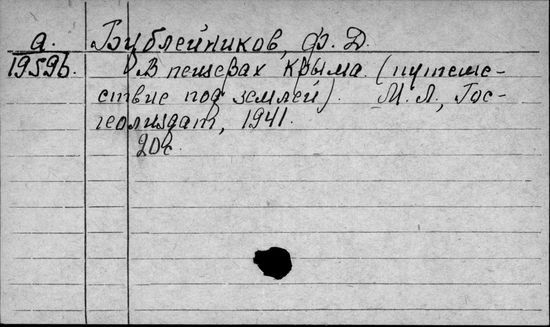 а. Бублейников, Ф. Д.
1959б. В пещерах Крыма. (путеше-
ствие под землей). М. Л., Гос-
геолиздат, 1941.
20с.